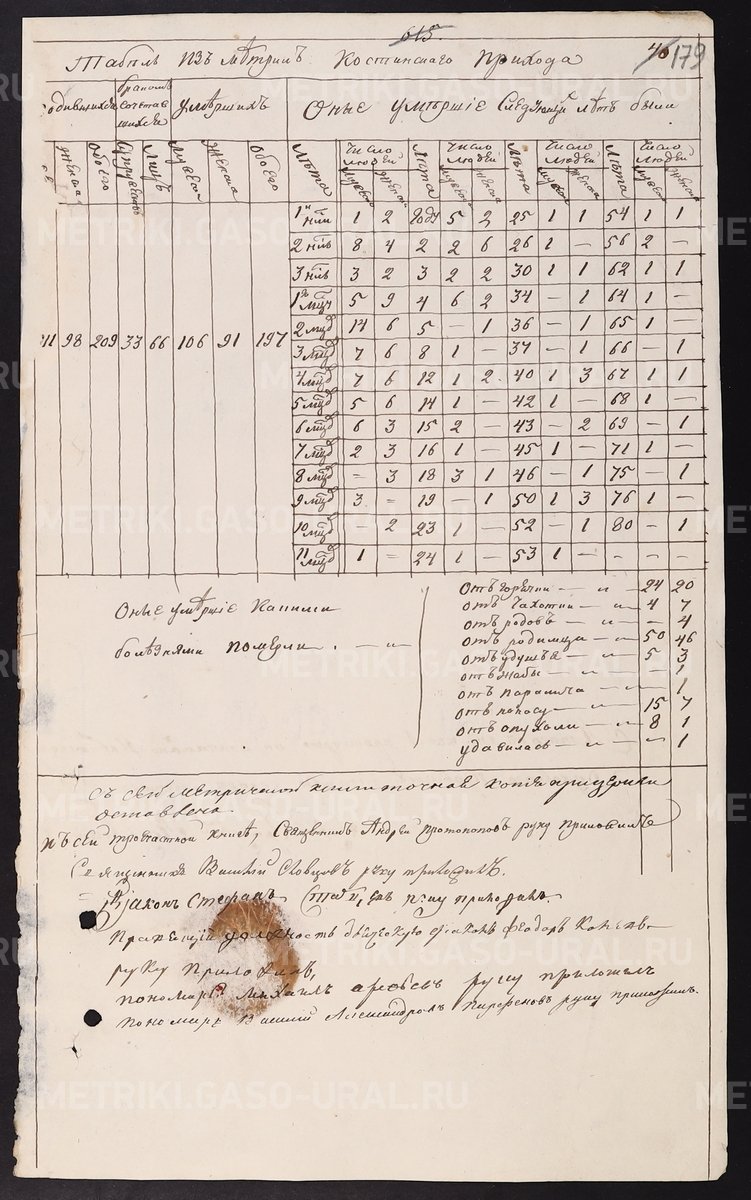 615
Табѣль изъ мѣтрикъ Костинскаго прихода 46 179
одившихся бракомъ сочетавшихся умѣршихъ Оные умѣршіе следующи лѣтъ были
женска обоего Супружествъ Лицъ мужеска женска обоего Лѣта число людей Лѣта число людей Лѣта число людей Лѣта число людей
мужеска женска мужеска женска мужеска женска мужеска женска
1й нлі 1 2 году 5 2 25 1 1 54 1 1
2 нлѣ 8 4 2 2 6 26 1 — 56 2 —
3 нлѣ 3 2 3 2 2 30 1 1 62 1 1
1й мцъ 5 9 4 6 2 34 — 1 64 1 —
2 мцъ 14 6 5 — 1 36 — 1 65 1 —
11 98 209 33 66 106 91 197
3 мцъ 7 6 8 1 — 37 — 1 66 — 1
4 мцъ 7 6 12 1 2 40 1 3 67 1 1
5 мцъ 5 6 14 1 — 42 1 — 68 1 —
6 мцъ 6 3 15 2 — 43 — 2 69 — 1
7 мцъ 2 3 16 1 — 45 1 — 71 1 —
8 мцъ — 3 18 3 1 46 — 1 75 — 1
9 мцъ 3 — 19 — 1 50 1 3 76 1 —
10 мцъ 2 23 1 — 52 — 1 80 — 1
11 мцъ 1 — 24 1 — 53 1 — — — —
Оные умѣршіе какими
болѣзнями померли
отъ горячки — „ — 24 20
отъ чахотки — „ — 4 7
отъ родовъ — „ — — 4
отъ родимца — „ — 50 46
отъ удушья — „ — 5 3
отъ жабы — „ — 1
отъ паралича — „ — 1
отъ поносу — „ — 15 7
отъ опухоли — „ — 8 1
удавилась — „ — „ 1
съ сей метрической книги точная копія при церкви
оставлена.
къ сей трочастной книгѣ, Священникъ Андрей Протопоповъ руку приложилъ
Священникъ Василій Словцовъ руку приложилъ.
Діаконъ Стефанъ руку приложилъ.
Правящій должность дьяческую діаконъ Феодоръ
руку приложилъ,
пономарь Михаилъ руку приложилъ
Пономарь Василій Александровъ Парфеновъ руку приложилъ.
METRIKI.GASO-URAL.RU